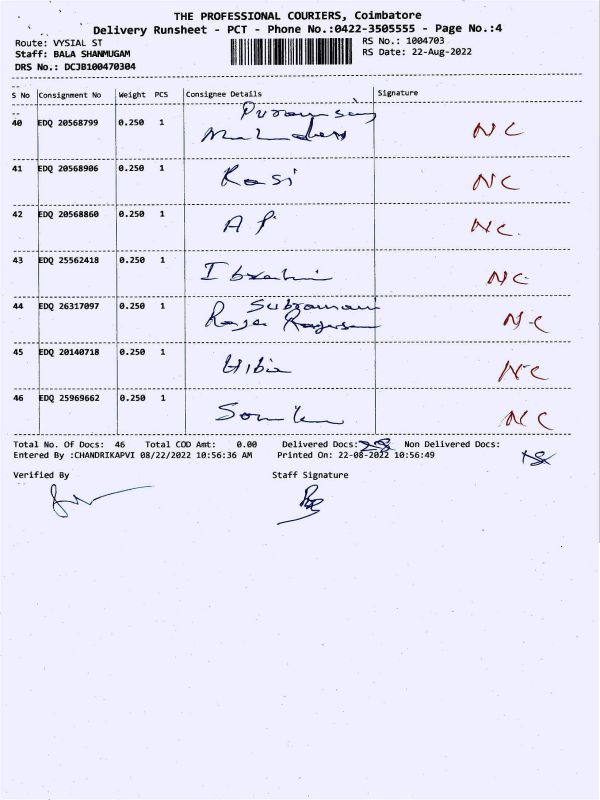 THE PROFESSIONAL COURIERS, Coimbatore
Delivery Runsheet - PCT - Phone No.:0422-3505555 - Page No.:4
Route: VYSIAL ST
RS No.: 1004703
Staff: BALA SHANMUGAM
RS Date: 22-Aug-2022
DRS No.: DCJB100470304
S No Consignment No Weight PCS Consignee Details Signature
40 EDQ 20568799 0.250 1 NC
41 EDQ 20568906 0.250 1 Kasi NC
42 EDQ 20568860 0.250 1 NC.
43 EDQ 25562418 0.250 1 NC
Subramani
44 EDQ 26317097 0.250 1 N-C
45 EDQ 20140718 0.250 1 NC
46 EDQ 25969662 0.250 1 NC
Total No. Of Docs: 46 Total COD Amt: 0.00 Delivered Docs: Non Delivered Docs:
Entered By :CHANDRIKAPVI 08/22/2022 10:56:36 AM Printed On: 22-08-2022 10:56:49
Verified By Staff Signature